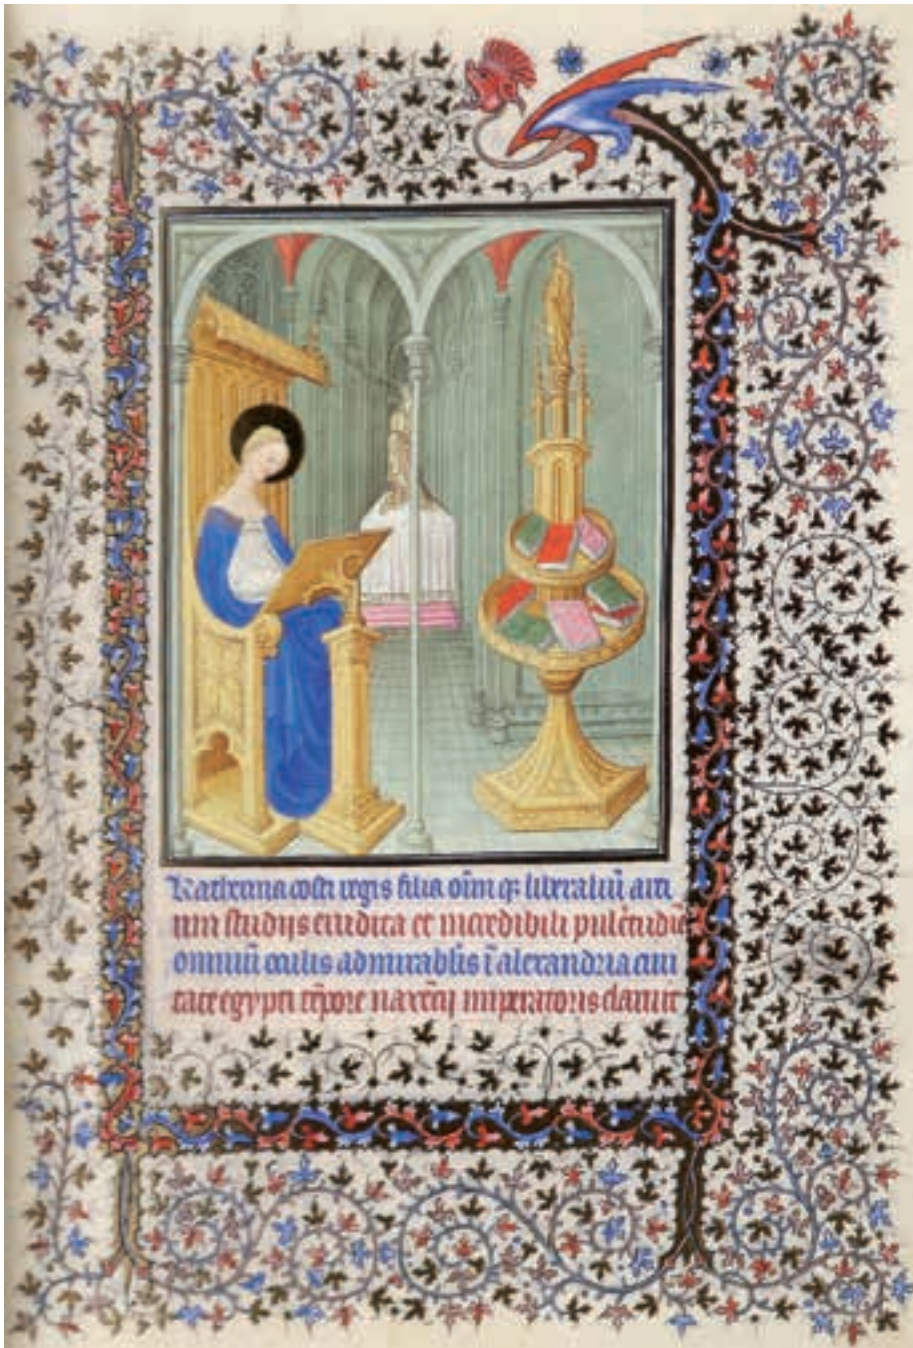 Katherina costi regis filia om̄i q; liberaliū arti
um studijs erudita et incredibili pulc̄tudīe
omniū oculis admirabl̄is ī alexandria ciui
tate egypti tp̄ore maxēcij imperatoris claruit